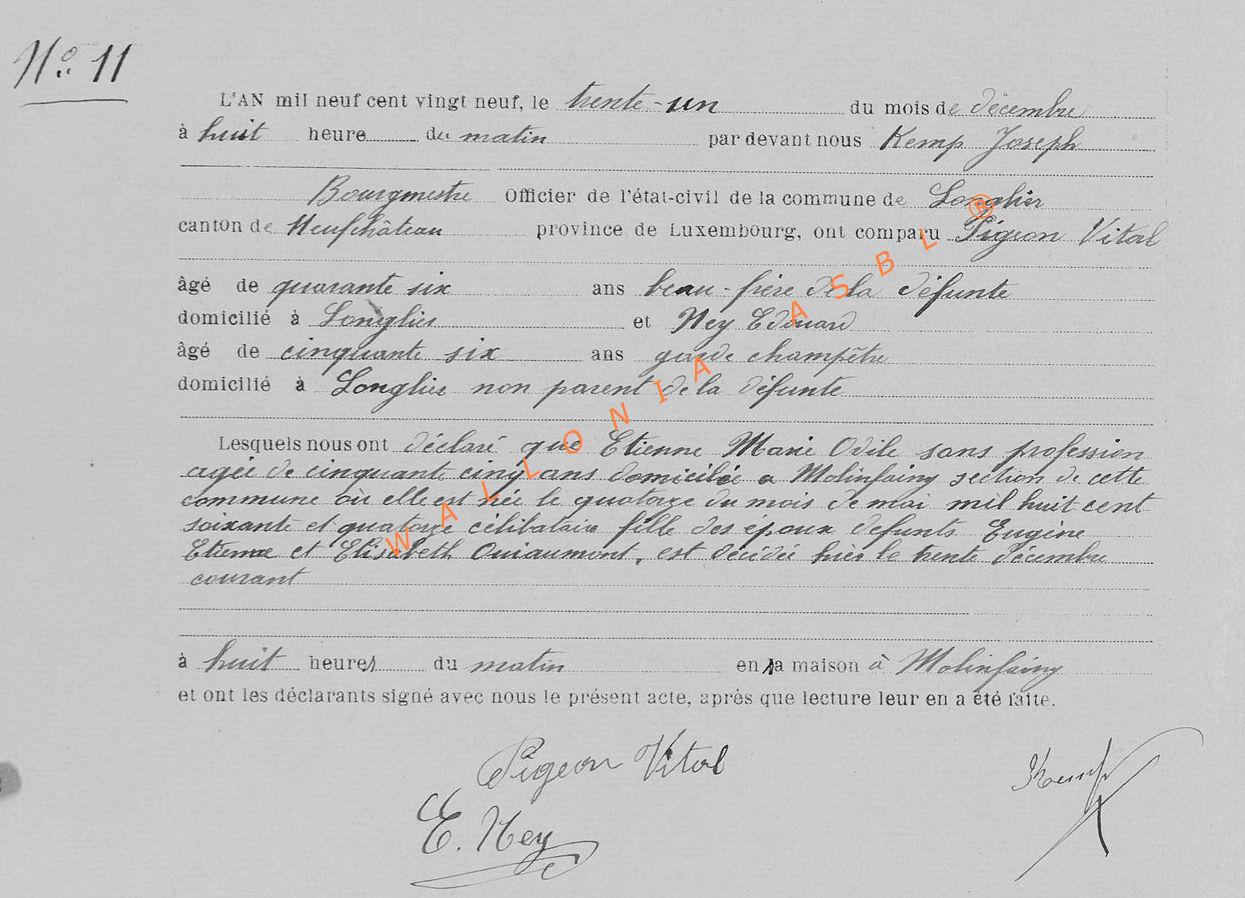 No. 11
L'AN mil neuf cent vingt neuf, le trente-un du mois de décembre
à huit heure du matin par devant nous Kemp Joseph
Bourgmestre Officier de l'état-civil de la commune de Longlier
canton de Neufchâteau province de Luxembourg, ont comparu Pigeon Vital
âgé de quarante six ans beau-frère de la défunte
domicilié à Longlier et Ney Edouard
âgé de cinquante six ans garde champêtre
domicilié à Longlier non parent de la défunte
Lesquels nous ont déclaré que Etienne Marie Odile sans profession
agée de cinquante cinq ans domiciliée a Molinfaing section de cette
commune où elle est née le quatorze du mois de mai mil huit cent
soixante et quatorze célibataire fille des epoux defunts Eugène
Etienne et Elisabeth Ouiaumont, est décédée hier le trente décembre
courant
à huit heures du matin en sa maison à Molinfaing
et ont les déclarants signé avec nous le présent acte, après que lecture leur en a été faite.
Pigeon Vital
Kemp
E. Ney
WALLONIA ASBL ®